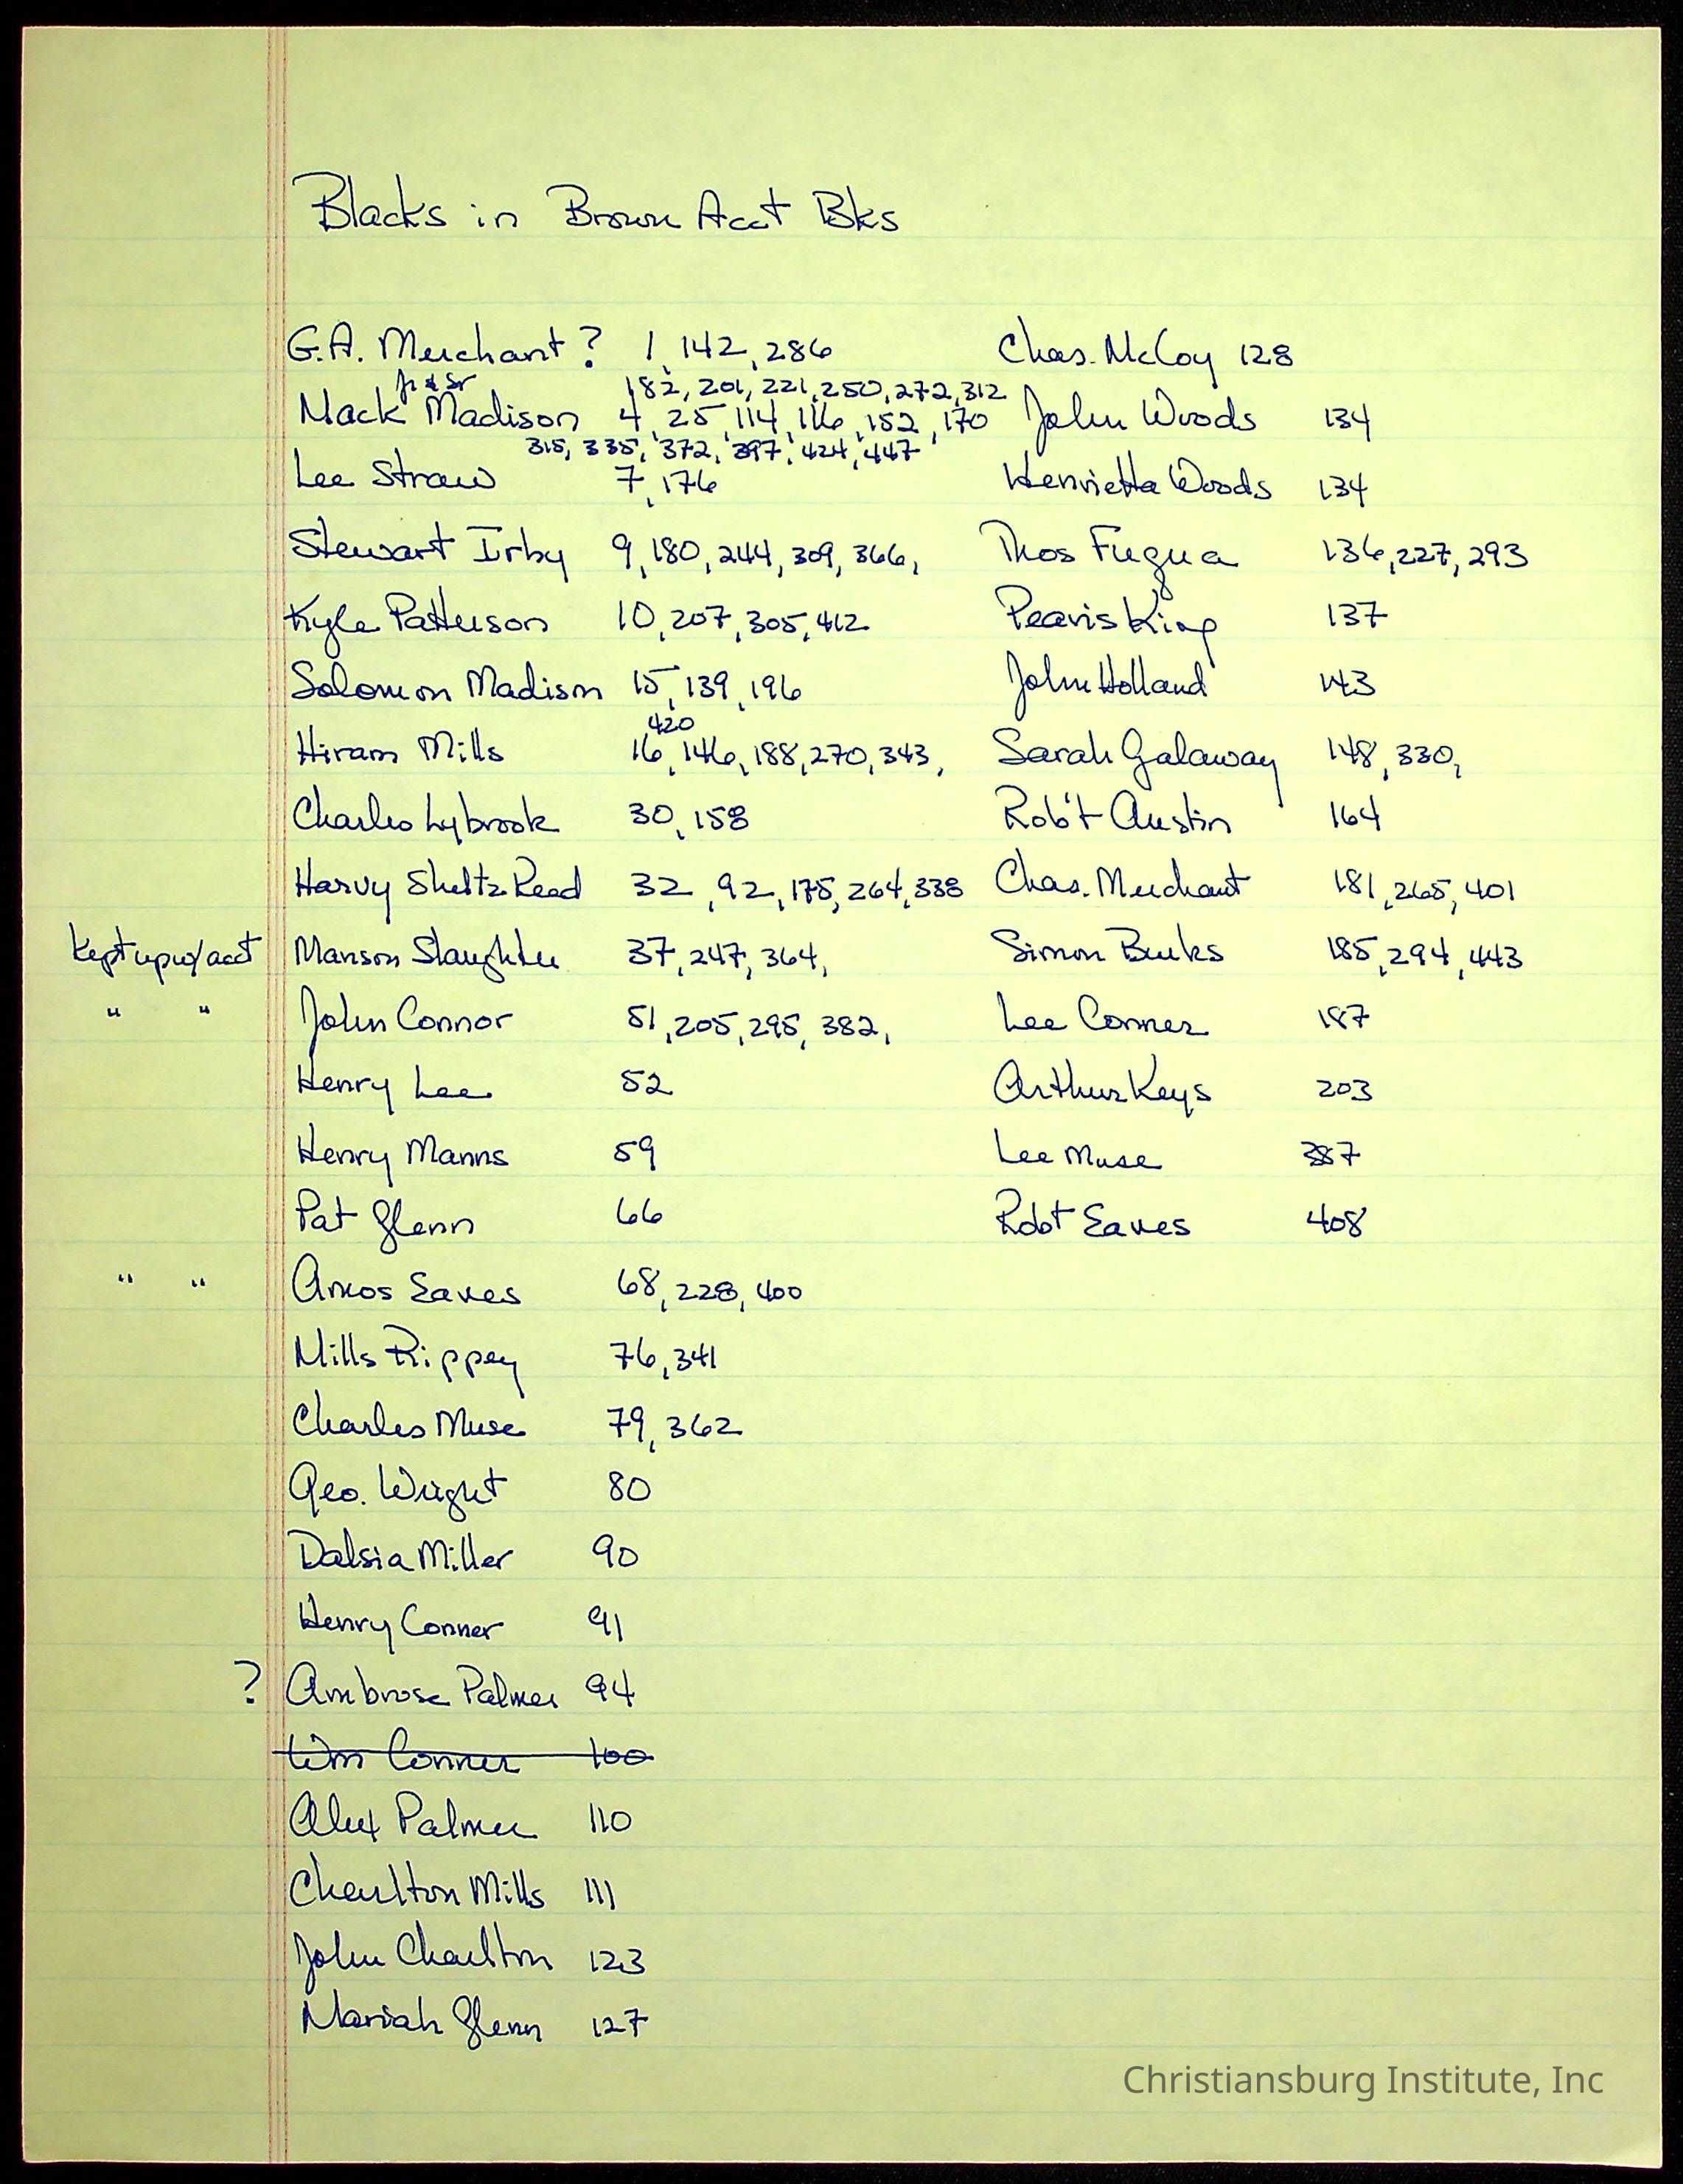 Blacks in Brown Acct Bks
G.A. Merchant? 1, 142, 286
Jr & Sr 182, 201, 221, 250, 272, 312
Mack Madison 4, 25, 114, 116, 152, 170
315, 335, 372, 397, 424, 447
Lee Straw 7, 176
Stewart Irby 9, 180, 244, 309, 366,
Kyle Patterson 10, 207, 305, 412
Solomon Madison 15, 139, 196
420
Hiram Mills 16, 146, 188, 270, 343,
Charles Lybrook 30, 158
Harvy Sheltz Read 32, 92, 175, 264, 338
Kept up w/ acct Manson Slaughter 37, 247, 364,
" " John Connor 51, 205, 295, 382,
Henry Lee 52
Henry Manns 59
Pat Glenn 66
" " Amos Eaves 68, 228, 400
Mills Rippey 76, 341
Charles Muse 79, 362
Geo. Wright 80
Dalsia Miller 90
Henry Conner 91
? Ambrose Palmer 94
Wm Conner 100
Alex Palmer 110
Charlton Mills 111
John Charlton 123
Mariah Glenn 127
Chas. McCoy 128
John Woods 134
Henrietta Woods 134
Thos Fuqua 136, 227, 293
Pearis King 137
John Holland 143
Sarah Galaway 148, 330,
Rob't Austin 164
Chas. Merchant 181, 265, 401
Simon Burks 185, 294, 443
Lee Conner 187
Arthur Keys 203
Lee Muse 387
Robt Eaves 408
Christiansburg Institute, Inc